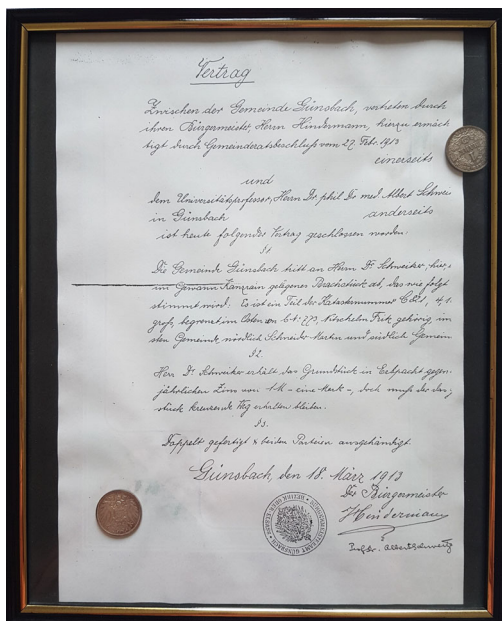 Vertrag
Zwischen der Gemeinde Günsbach, vertreten durch
ihren Bürgermeister, Herrn Hindermann, hierzu ermäch
tigt durch Gemeinderatsbeschluß vom 27. Feb. 1913
einerseits
und
dem Universitätsprofessor, Herrn Dr. phil Dr med. Albert Schwei
in Günsbach anderseits
ist heute folgender Vertrag geschlossen worden:
§1.
Die Gemeinde Günsbach tritt an Herrn Dr. Schweitzer, hier,
im Gewann Kanzrain gelegenes Brachstück ab, das wie folgt
stimmt wird. Es ist ein Teil der Katasternummer
groß, begrenzt im Osten von Fritz gehörig, im
sten Gemeinde, nördlich Schneider Martin und südlich Gemein
§2.
Herr Dr. Schweitzer erhält das Grundstück in Erbpacht gegen
jährlichen Zins von 1 M - eine Mark -, doch muß der das
stück kreuzende Weg erhalten bleiben.
§3.
Doppelt gefertigt & beiden Parteien ausgehändigt.
Günsbach, den 18. März 1913
Der Bürgermeister
Hindermann
Prof. Dr. Albert Schweitz
BÜRGERMEISTERAMT GÜNSBACH